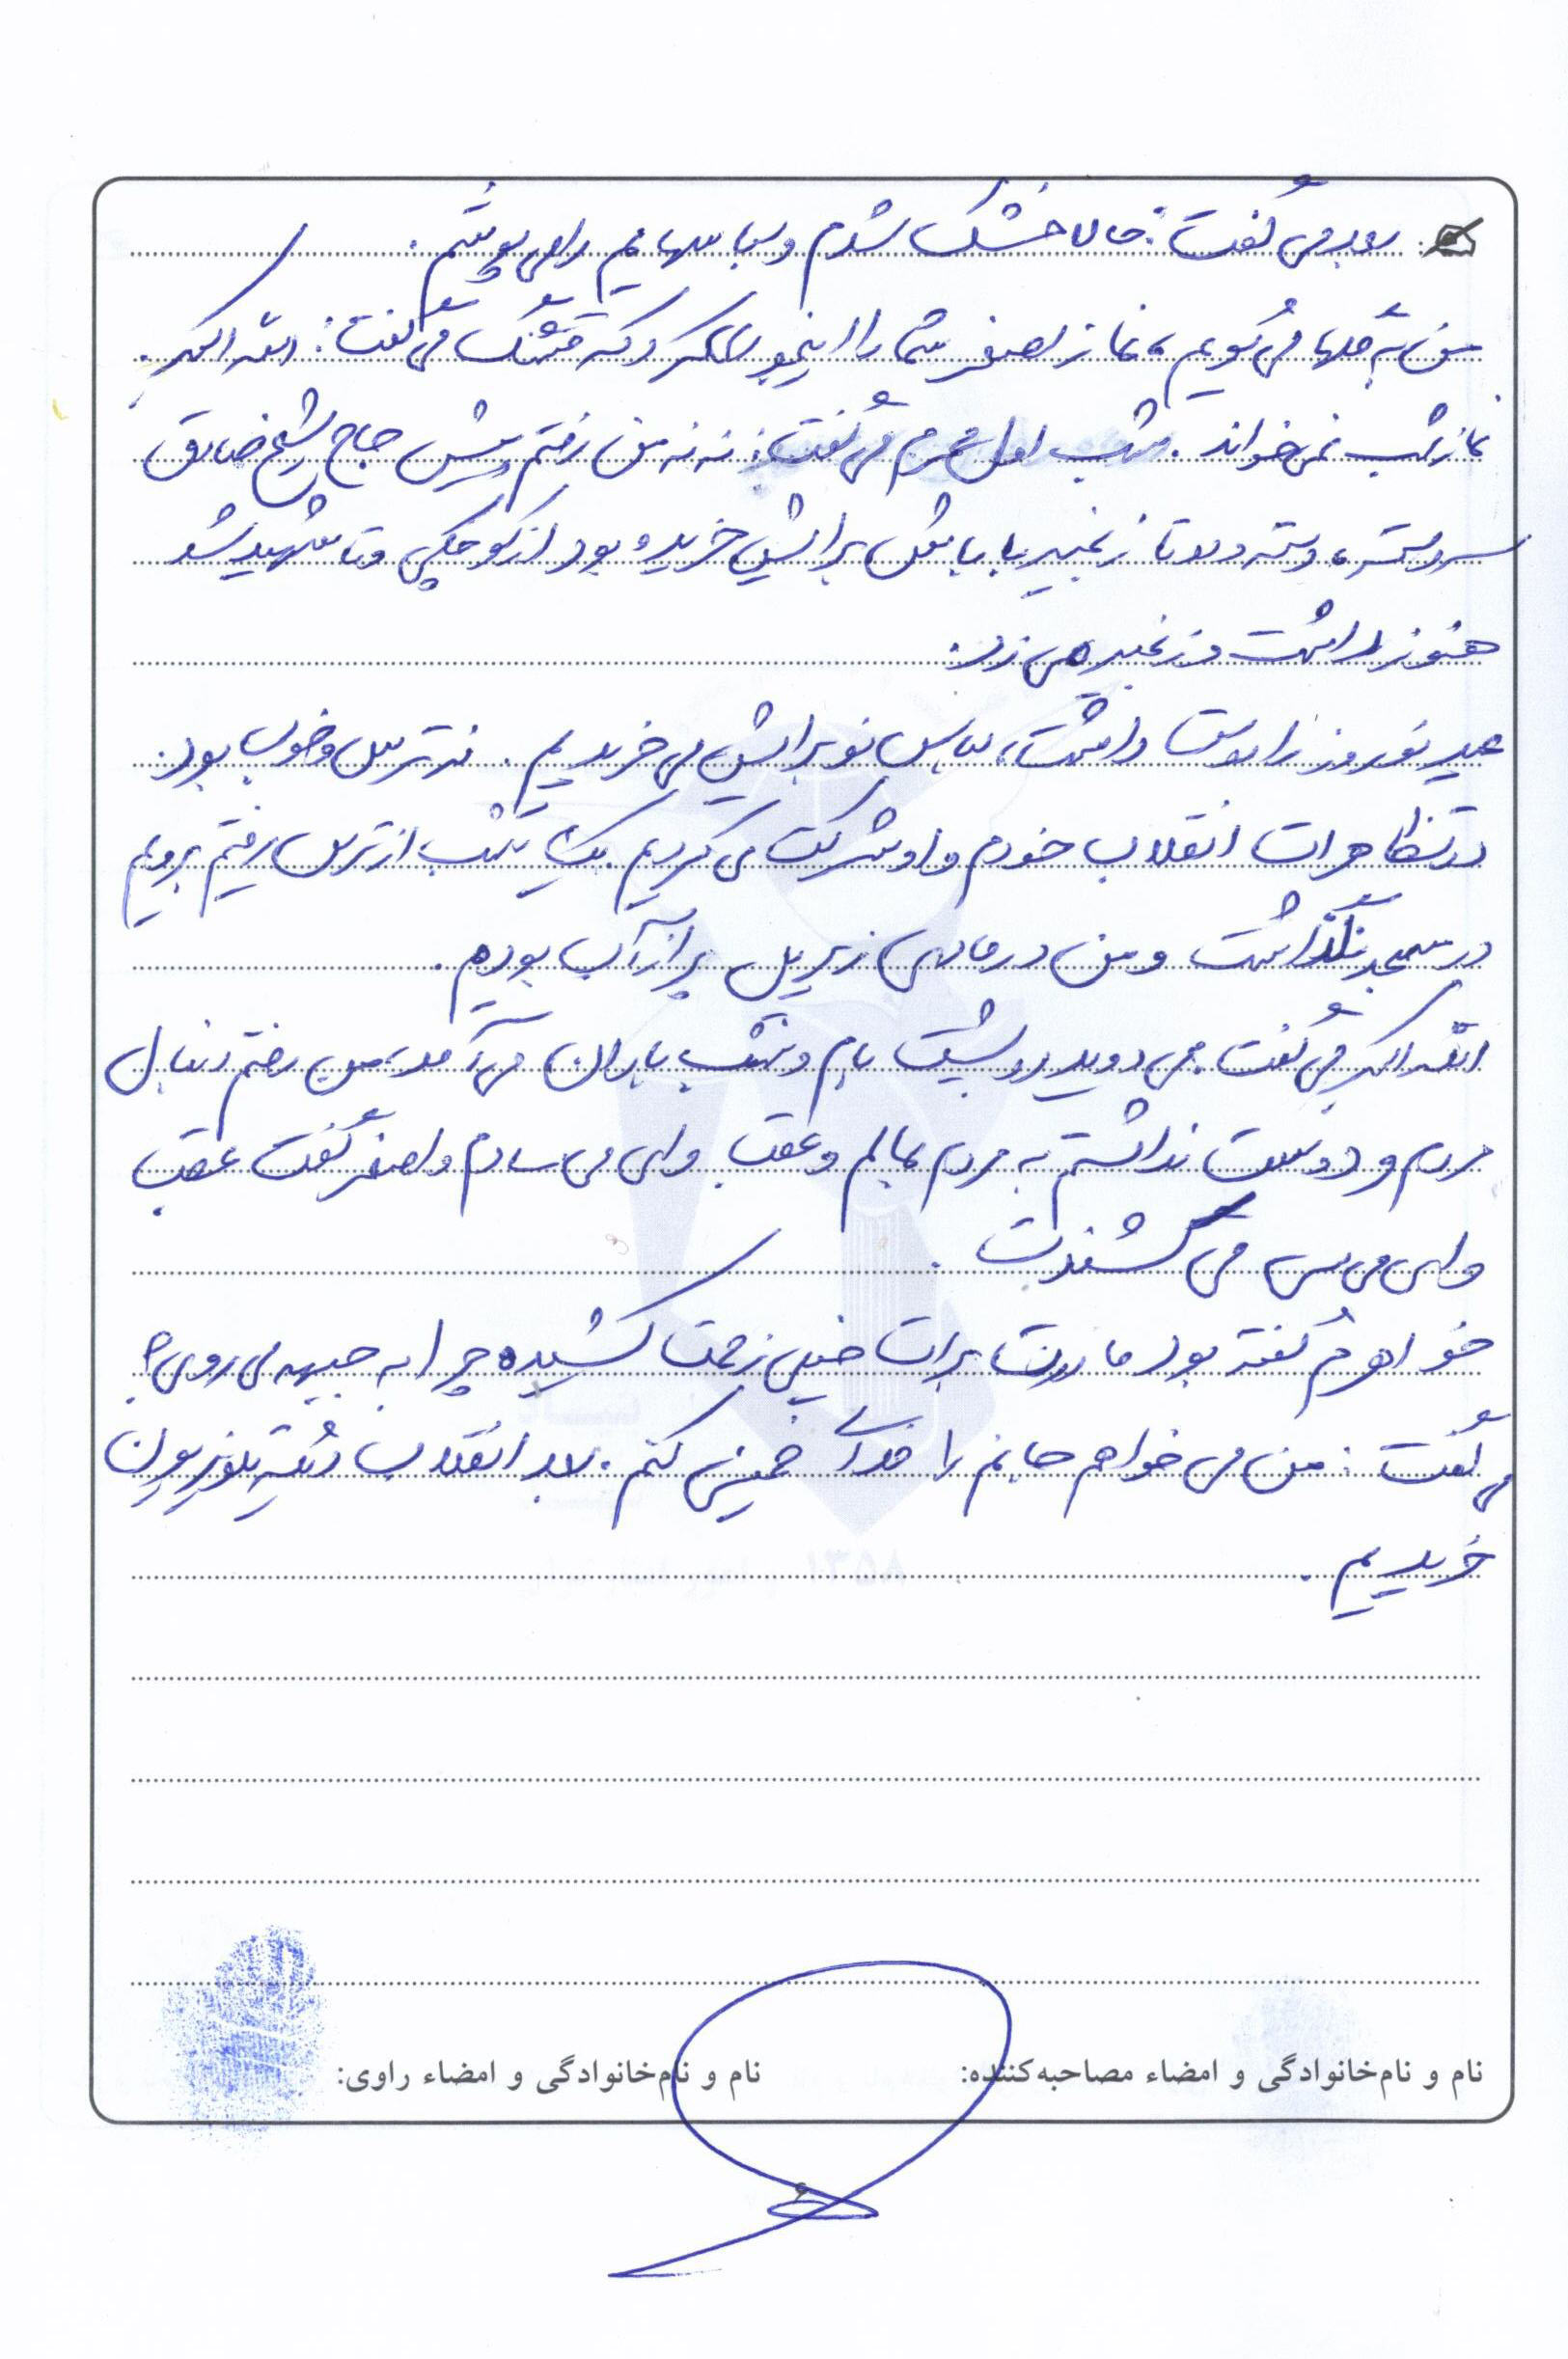 بعد می گفت: حالا خشک شدم و لباسهایم را می پوشم.
من به قلها می گویم، نماز اصغر شما را اینجوری کرد که قشنگ می گفت: الله اکبر.
نماز شب نمی خواند. شب اول محرم می گفت: ننه من رفتم پیش حاج شیخ صادق
سردسته، دسته دوتا زنجیر بابابش برایش خریده بود از کوچکی و تا شهید شد
هنوز داشت و زنجیر می زد.
عید نوروز را دوست داشت، لباس نو برایش می خریدیم. نترس و خوب بود.
در تظاهرات انقلاب خودم و او شرکت می کردیم. یک شب از ترس رفتیم برویم
در مسجد نگذاشت و من در ماهی زیر پل پر از آب بودیم.
الله اکبر می گفت. می دوید رو پشت بام و شب باران می آمد، من رفتم دنبال
مردم و دوست نداشتم به مردم بمالم و عقب وامی می سادم و اصغر گفت عقب
وامی می سی می کشندت.
خواهرم گفته بود مادرت برات خیلی زحمت کشیده چرا به جبهه می روی؟
می گفت: من می خواهم جانم را فدای خمینی کنم. بعد انقلاب دیگه تلویزیون
خریدیم.
نام و نام‌خانوادگی و امضاء مصاحبه‌کننده: نام و نام‌خانوادگی و امضاء راوی: